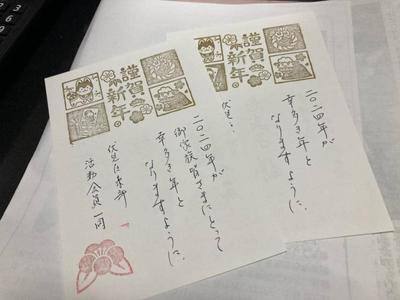 謹賀
新年。
二〇二四年が
幸多き年と
なりますように。
伏見
謹賀
新年。
二〇二四年が
御家族皆さまにとって
幸多き年と
なりますように。
伏見
活動会員一同